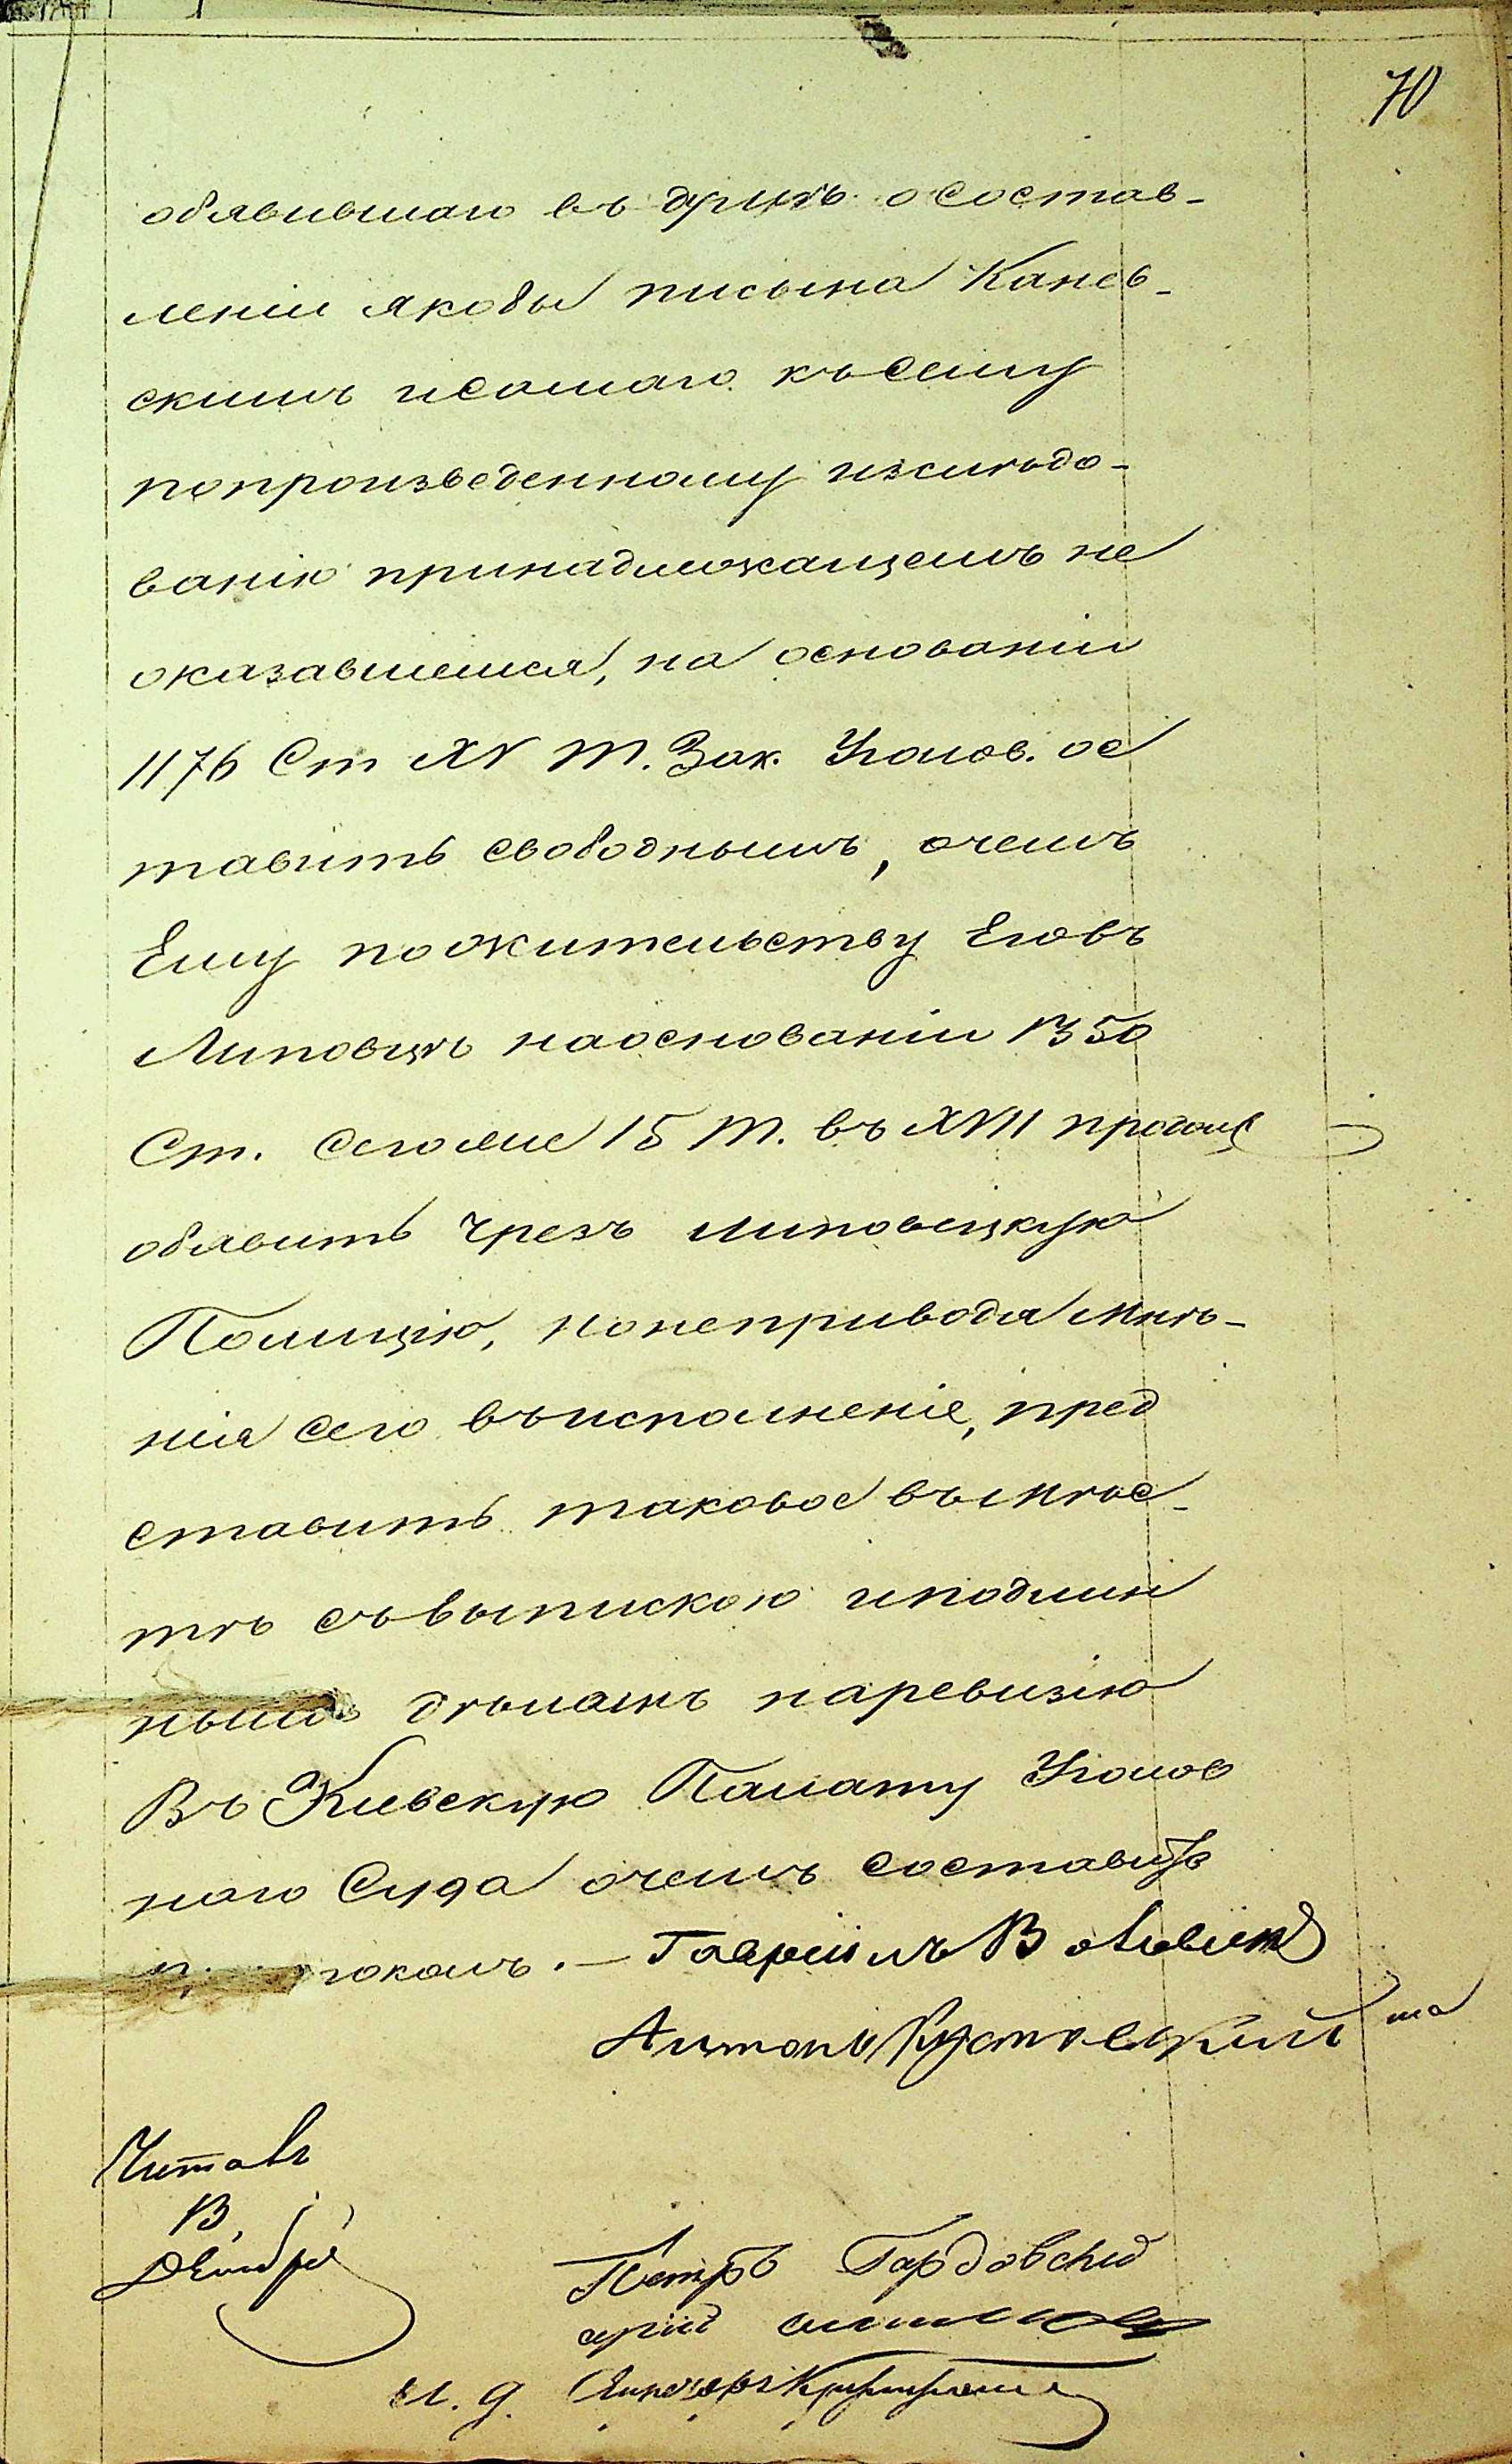 70
объявившаго въ другъ о состав-
леніи якобы письма Канев-
скимъ и самаго къ сему
по произведенному изслѣдо-
ванію принадлежащемъ не
оказавшемся, на основаніи
1176 Ст XV Т. Зак. Уголов. ос
тавить свободнымъ, о чемъ
Ему по жительству Его въ
Липовцѣ на основаніи 1350
Ст. сего же 15 Т. въ XVII продолж
объявить чрезъ Липовецкую
Полицію, но не приводя мнѣ-
нія сего въ исполненіе, пред
ставить таковое вмѣс-
тѣ съ выпискою и подлин
нымъ дѣломъ на ревизію
Въ Кіевскую Палату Уголов
наго Суда о чемъ составить
п токолъ. — Гавріилъ
Антонъ
Читалъ
В.
Петръ Гардовскій
И. д.